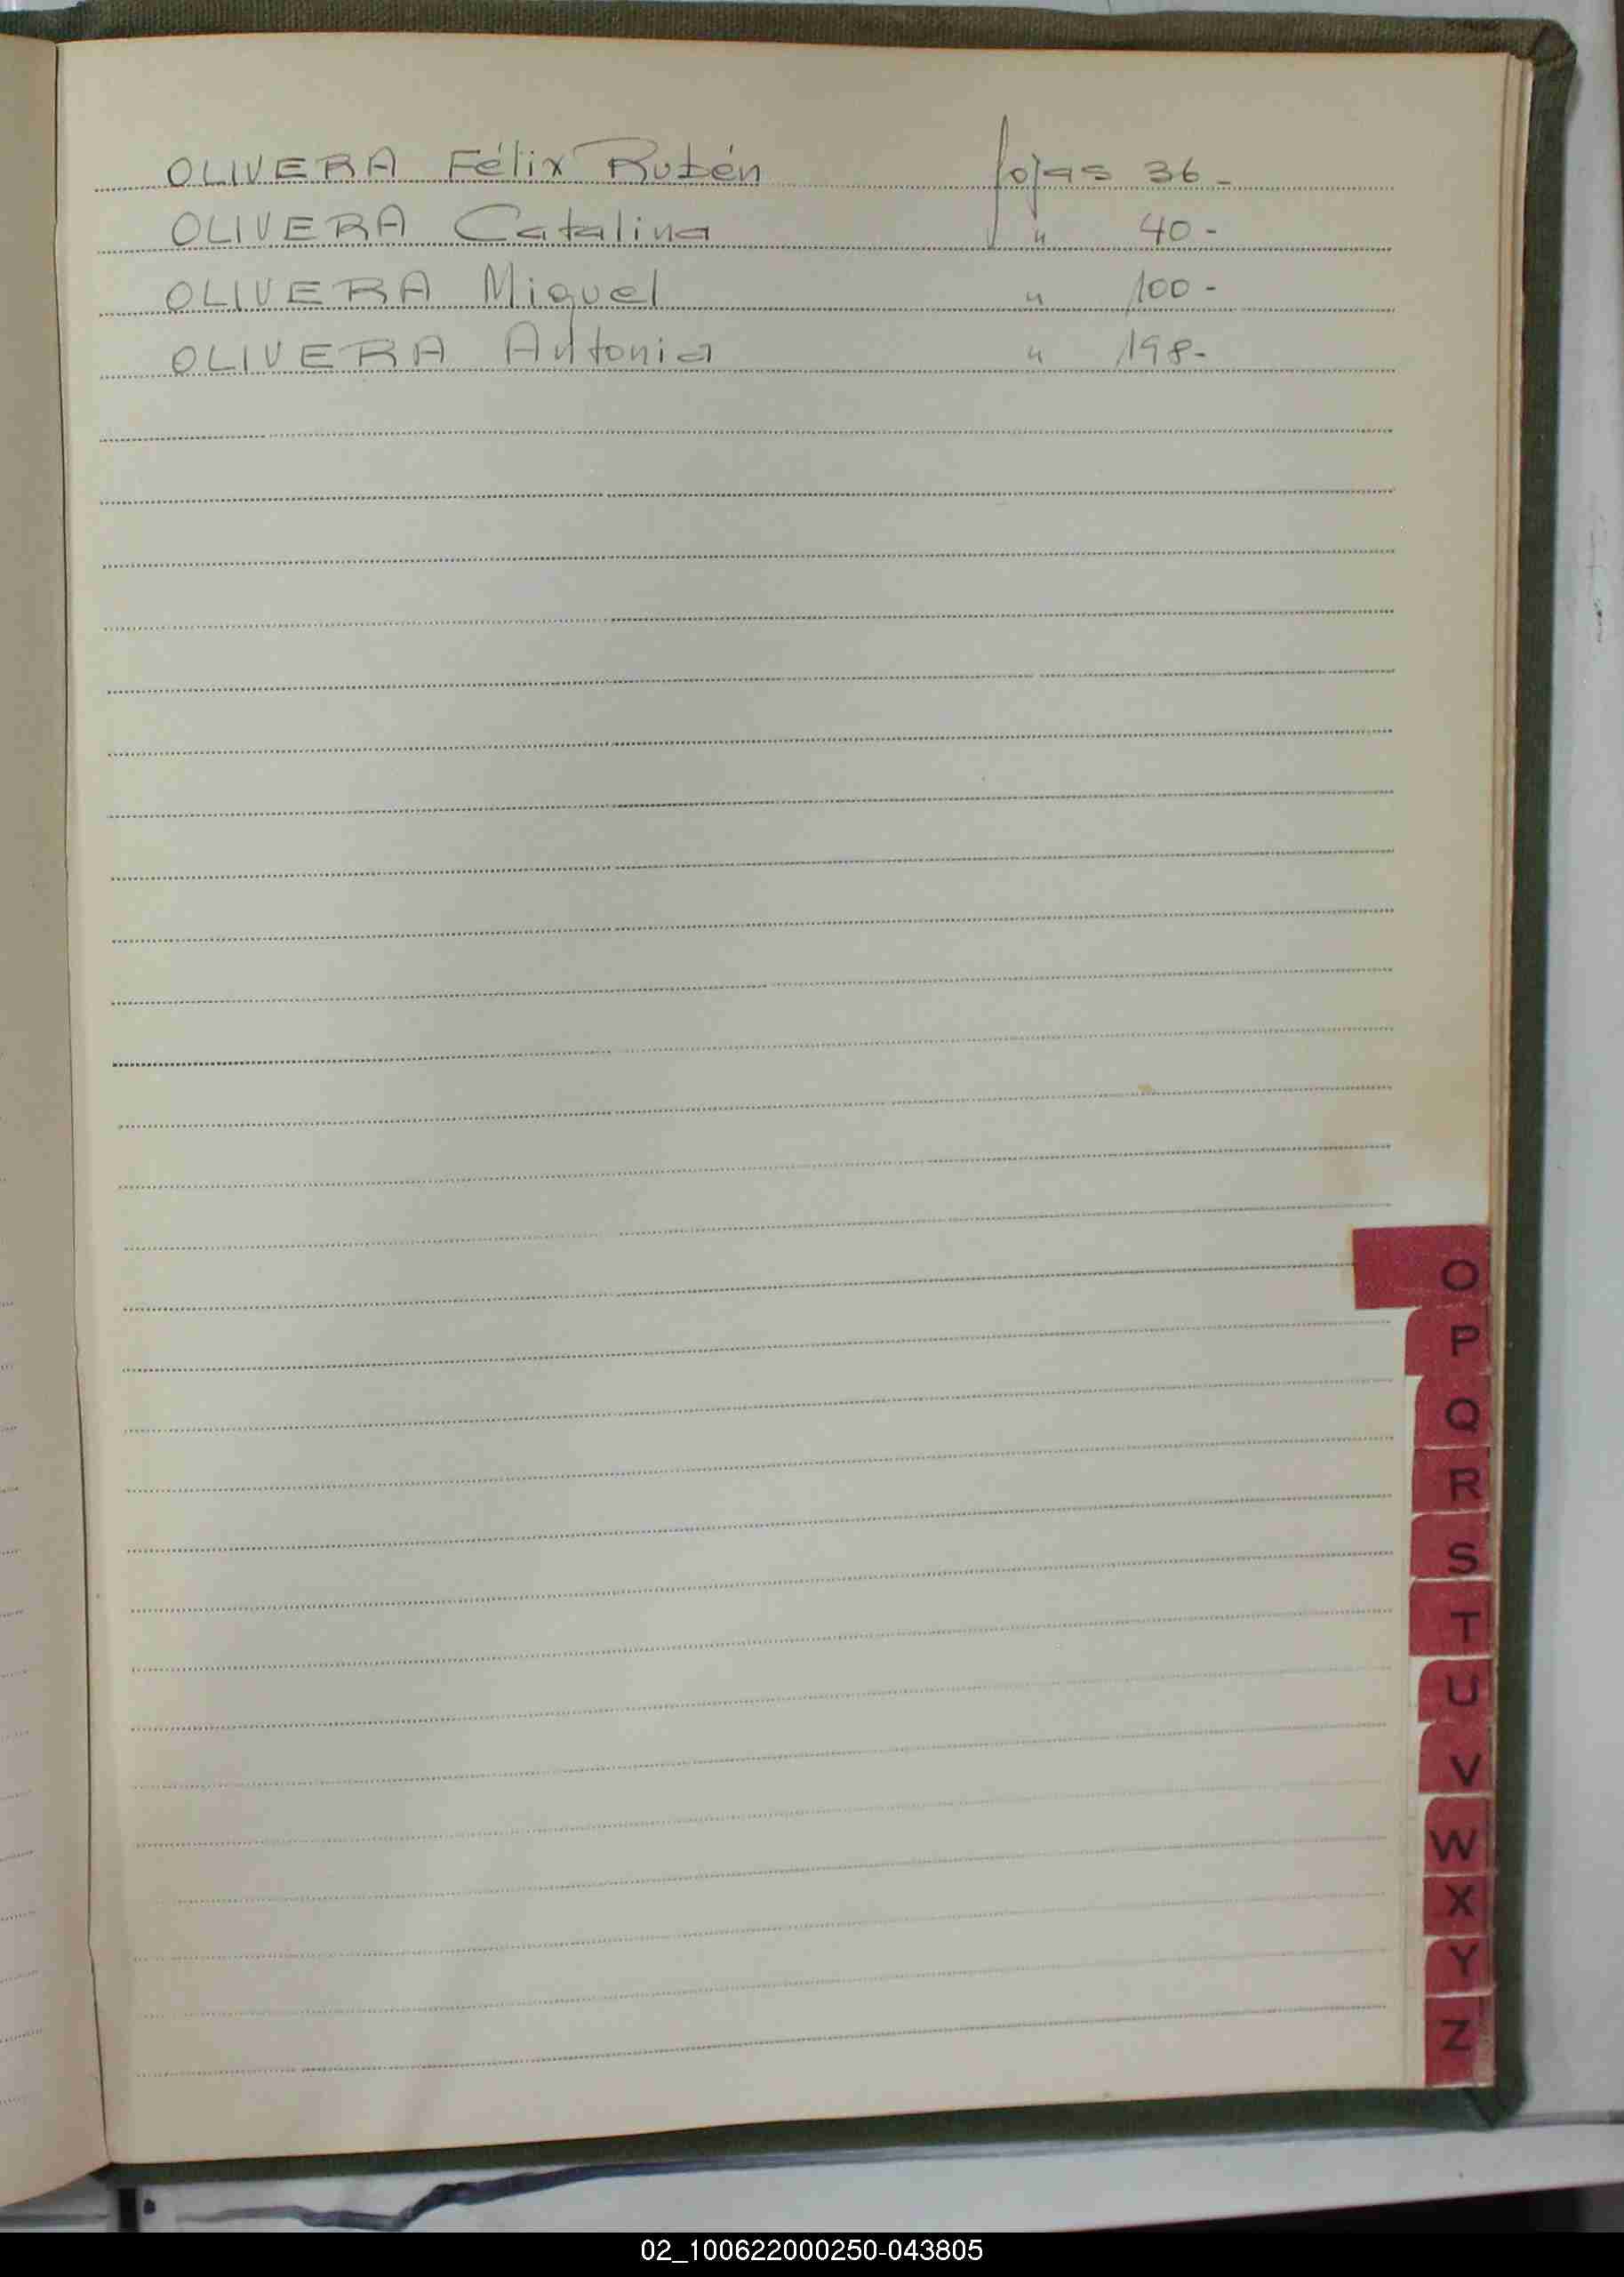 OLIVERA Félix Rubén fojas 36-
OLIVERA Catalina " 40-
OLIVERA Miguel " 100-
OLIVERA Antonia " 198-
O
P
Q
R
S
T
U
V
W
X
Y
Z
02_100622000250-043805